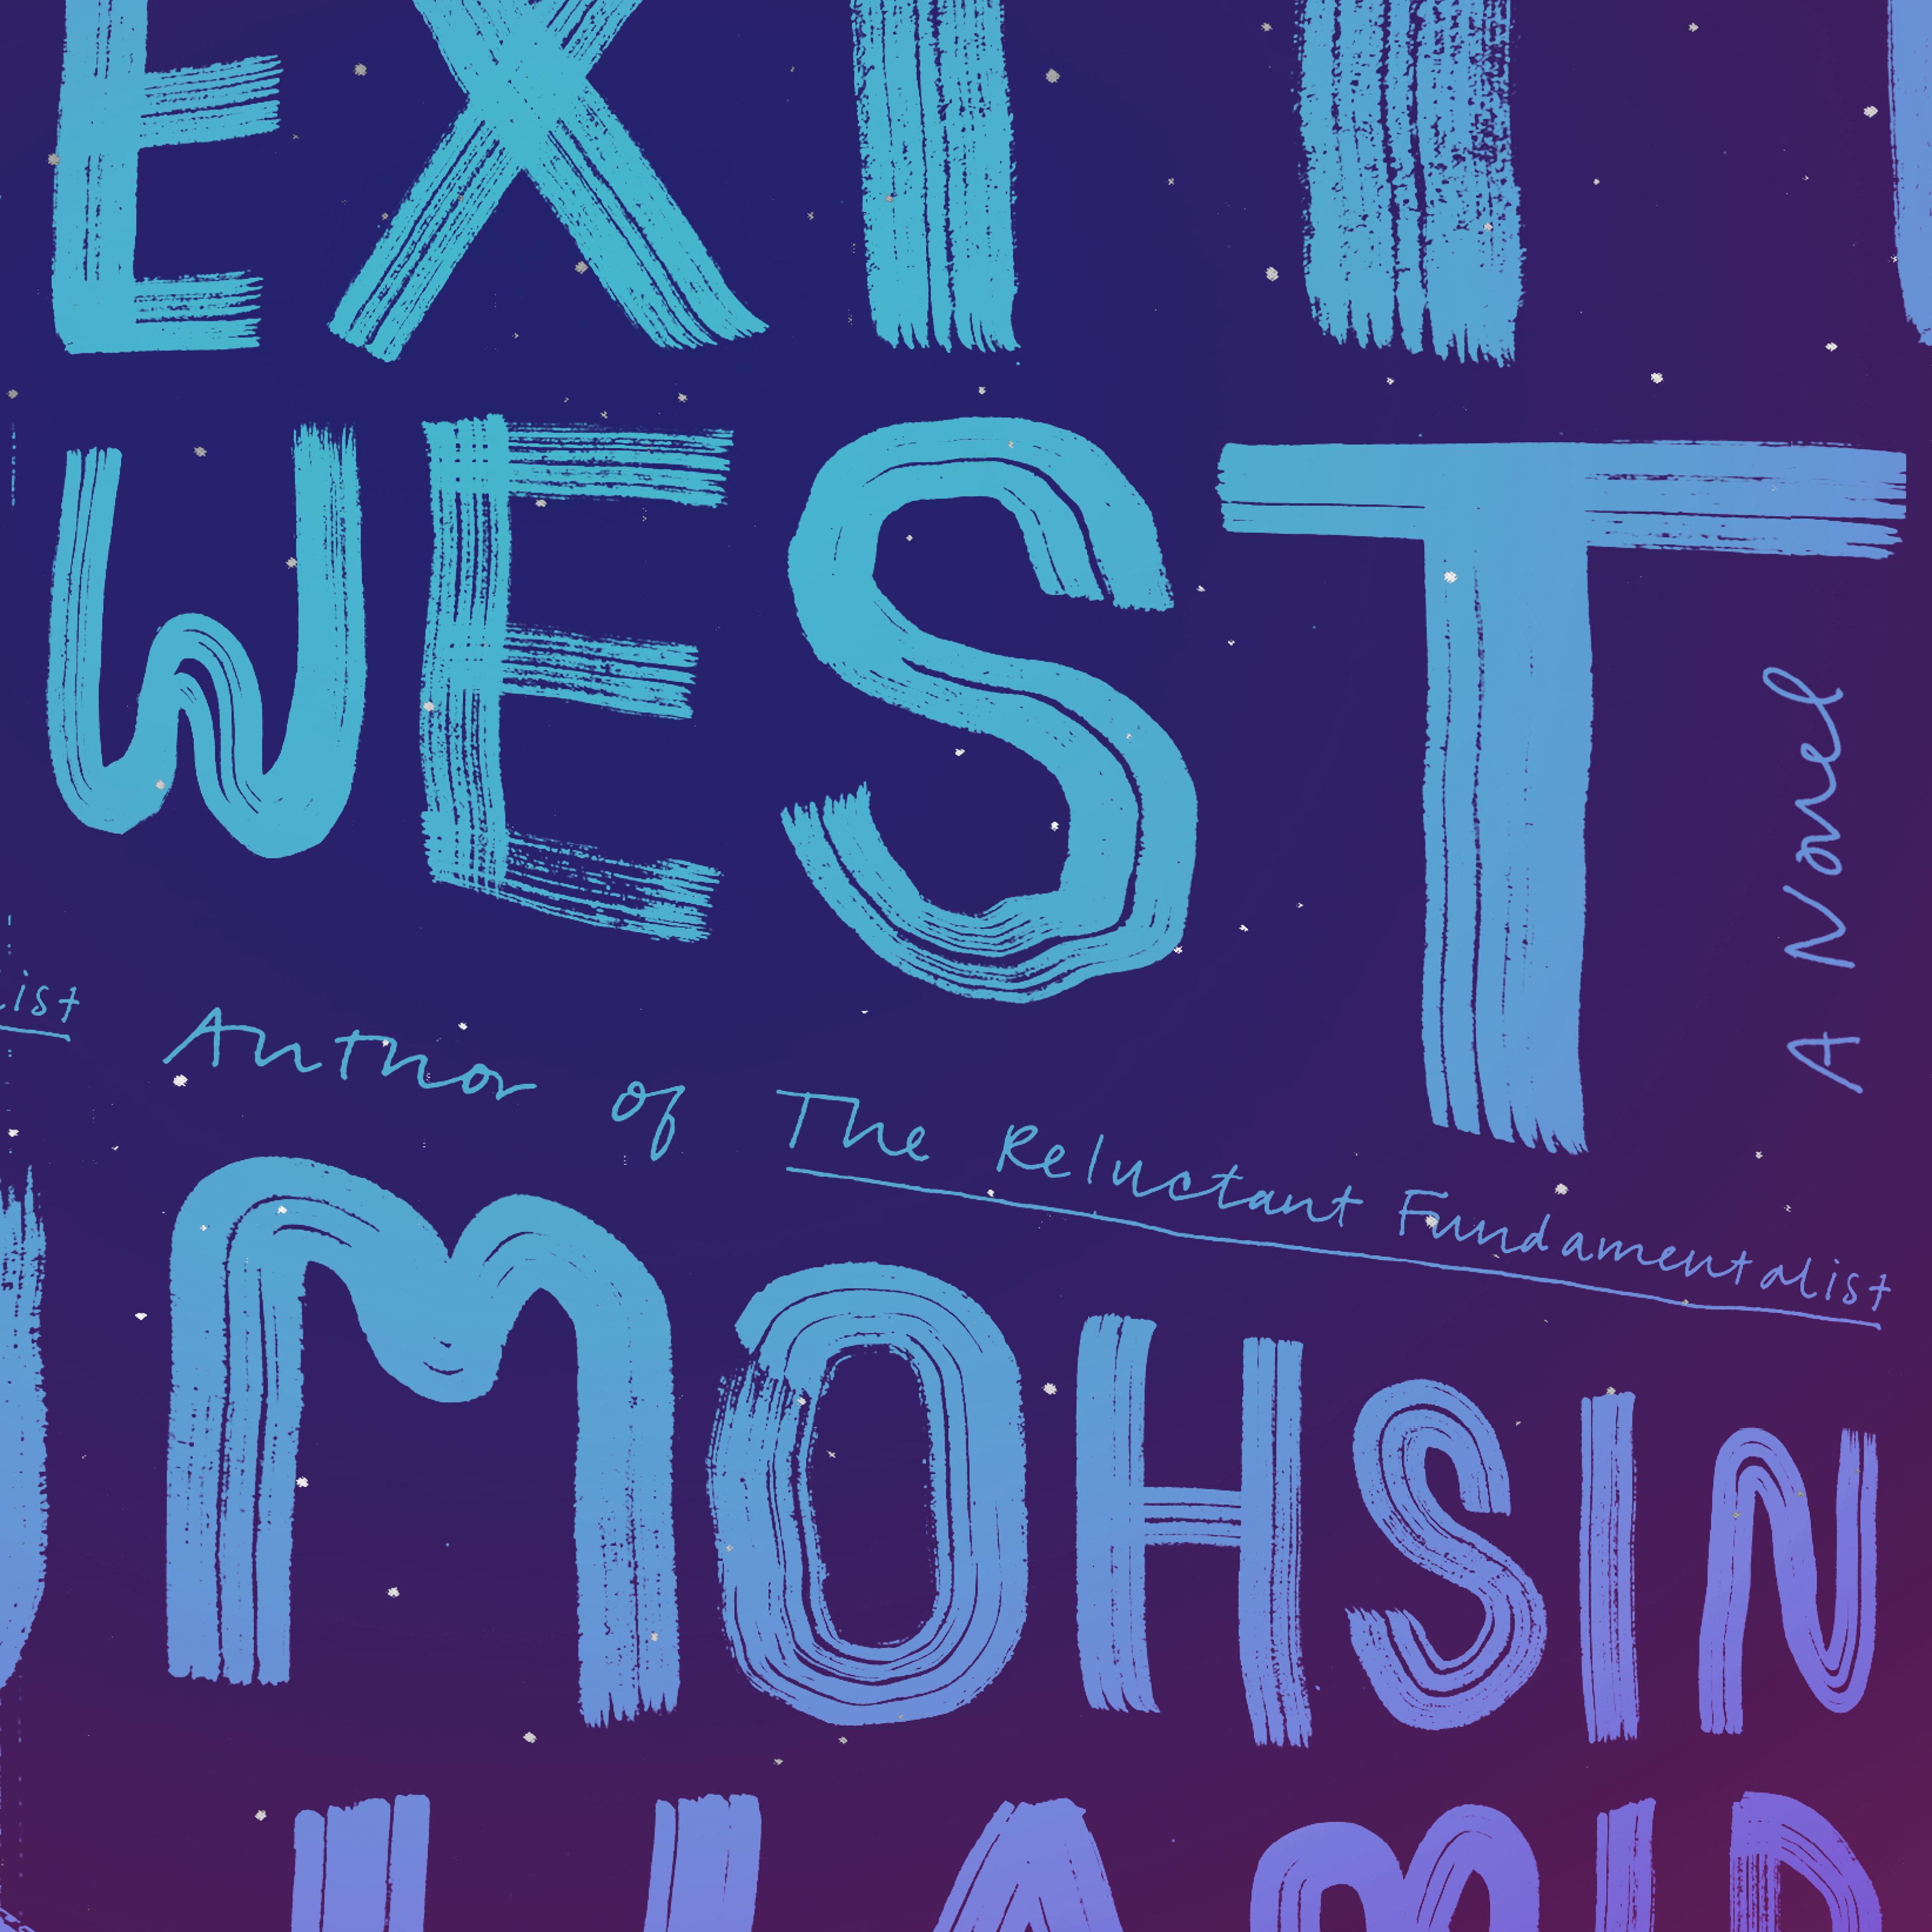 EXIT
WEST
A Novel
list
Author of The Reluctant Fundamentalist
MOHSIN
HAMID